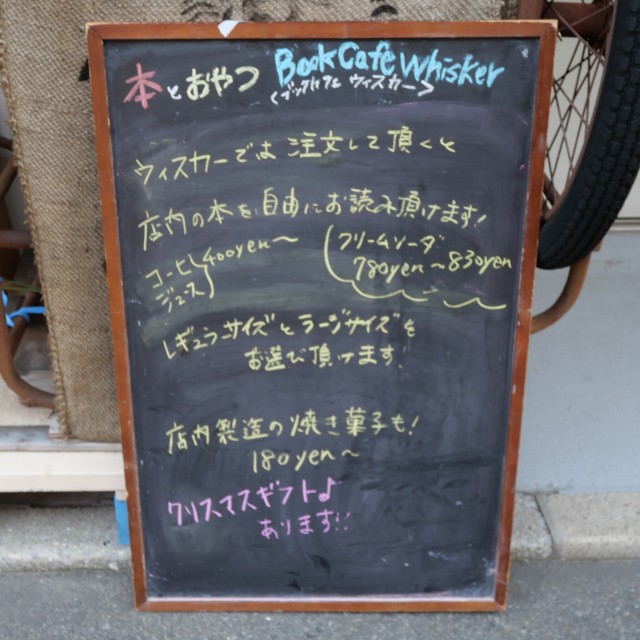 本とおやつ Book Cafe Whisker
(ブックカフェ ウィスカー)
ウィスカーでは注文して頂くと
店内の本を自由にお読み頂けます!
コーヒー
ジュース
400yen〜
クリームソーダ
780yen〜830yen
レギュラーサイズとラージサイズを
お選び頂けます
店内製造の焼き菓子も!
180yen〜
クリスマスギフト♪
あります!!